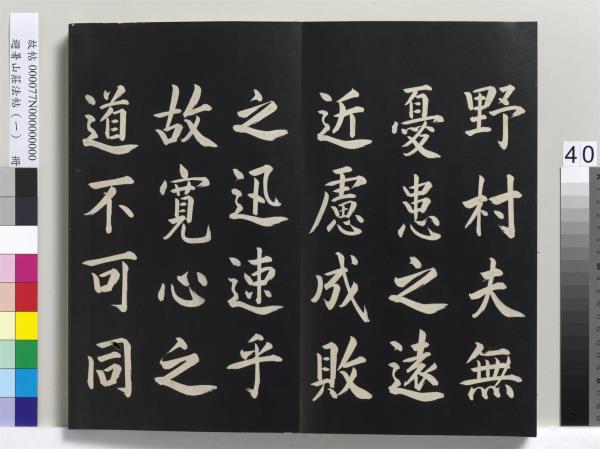 野村夫無
憂患之遠
近慮成敗
之迅速乎
故寬心之
道不可同
故帖 000077N000000000
避暑山莊法帖(一) 冊
40